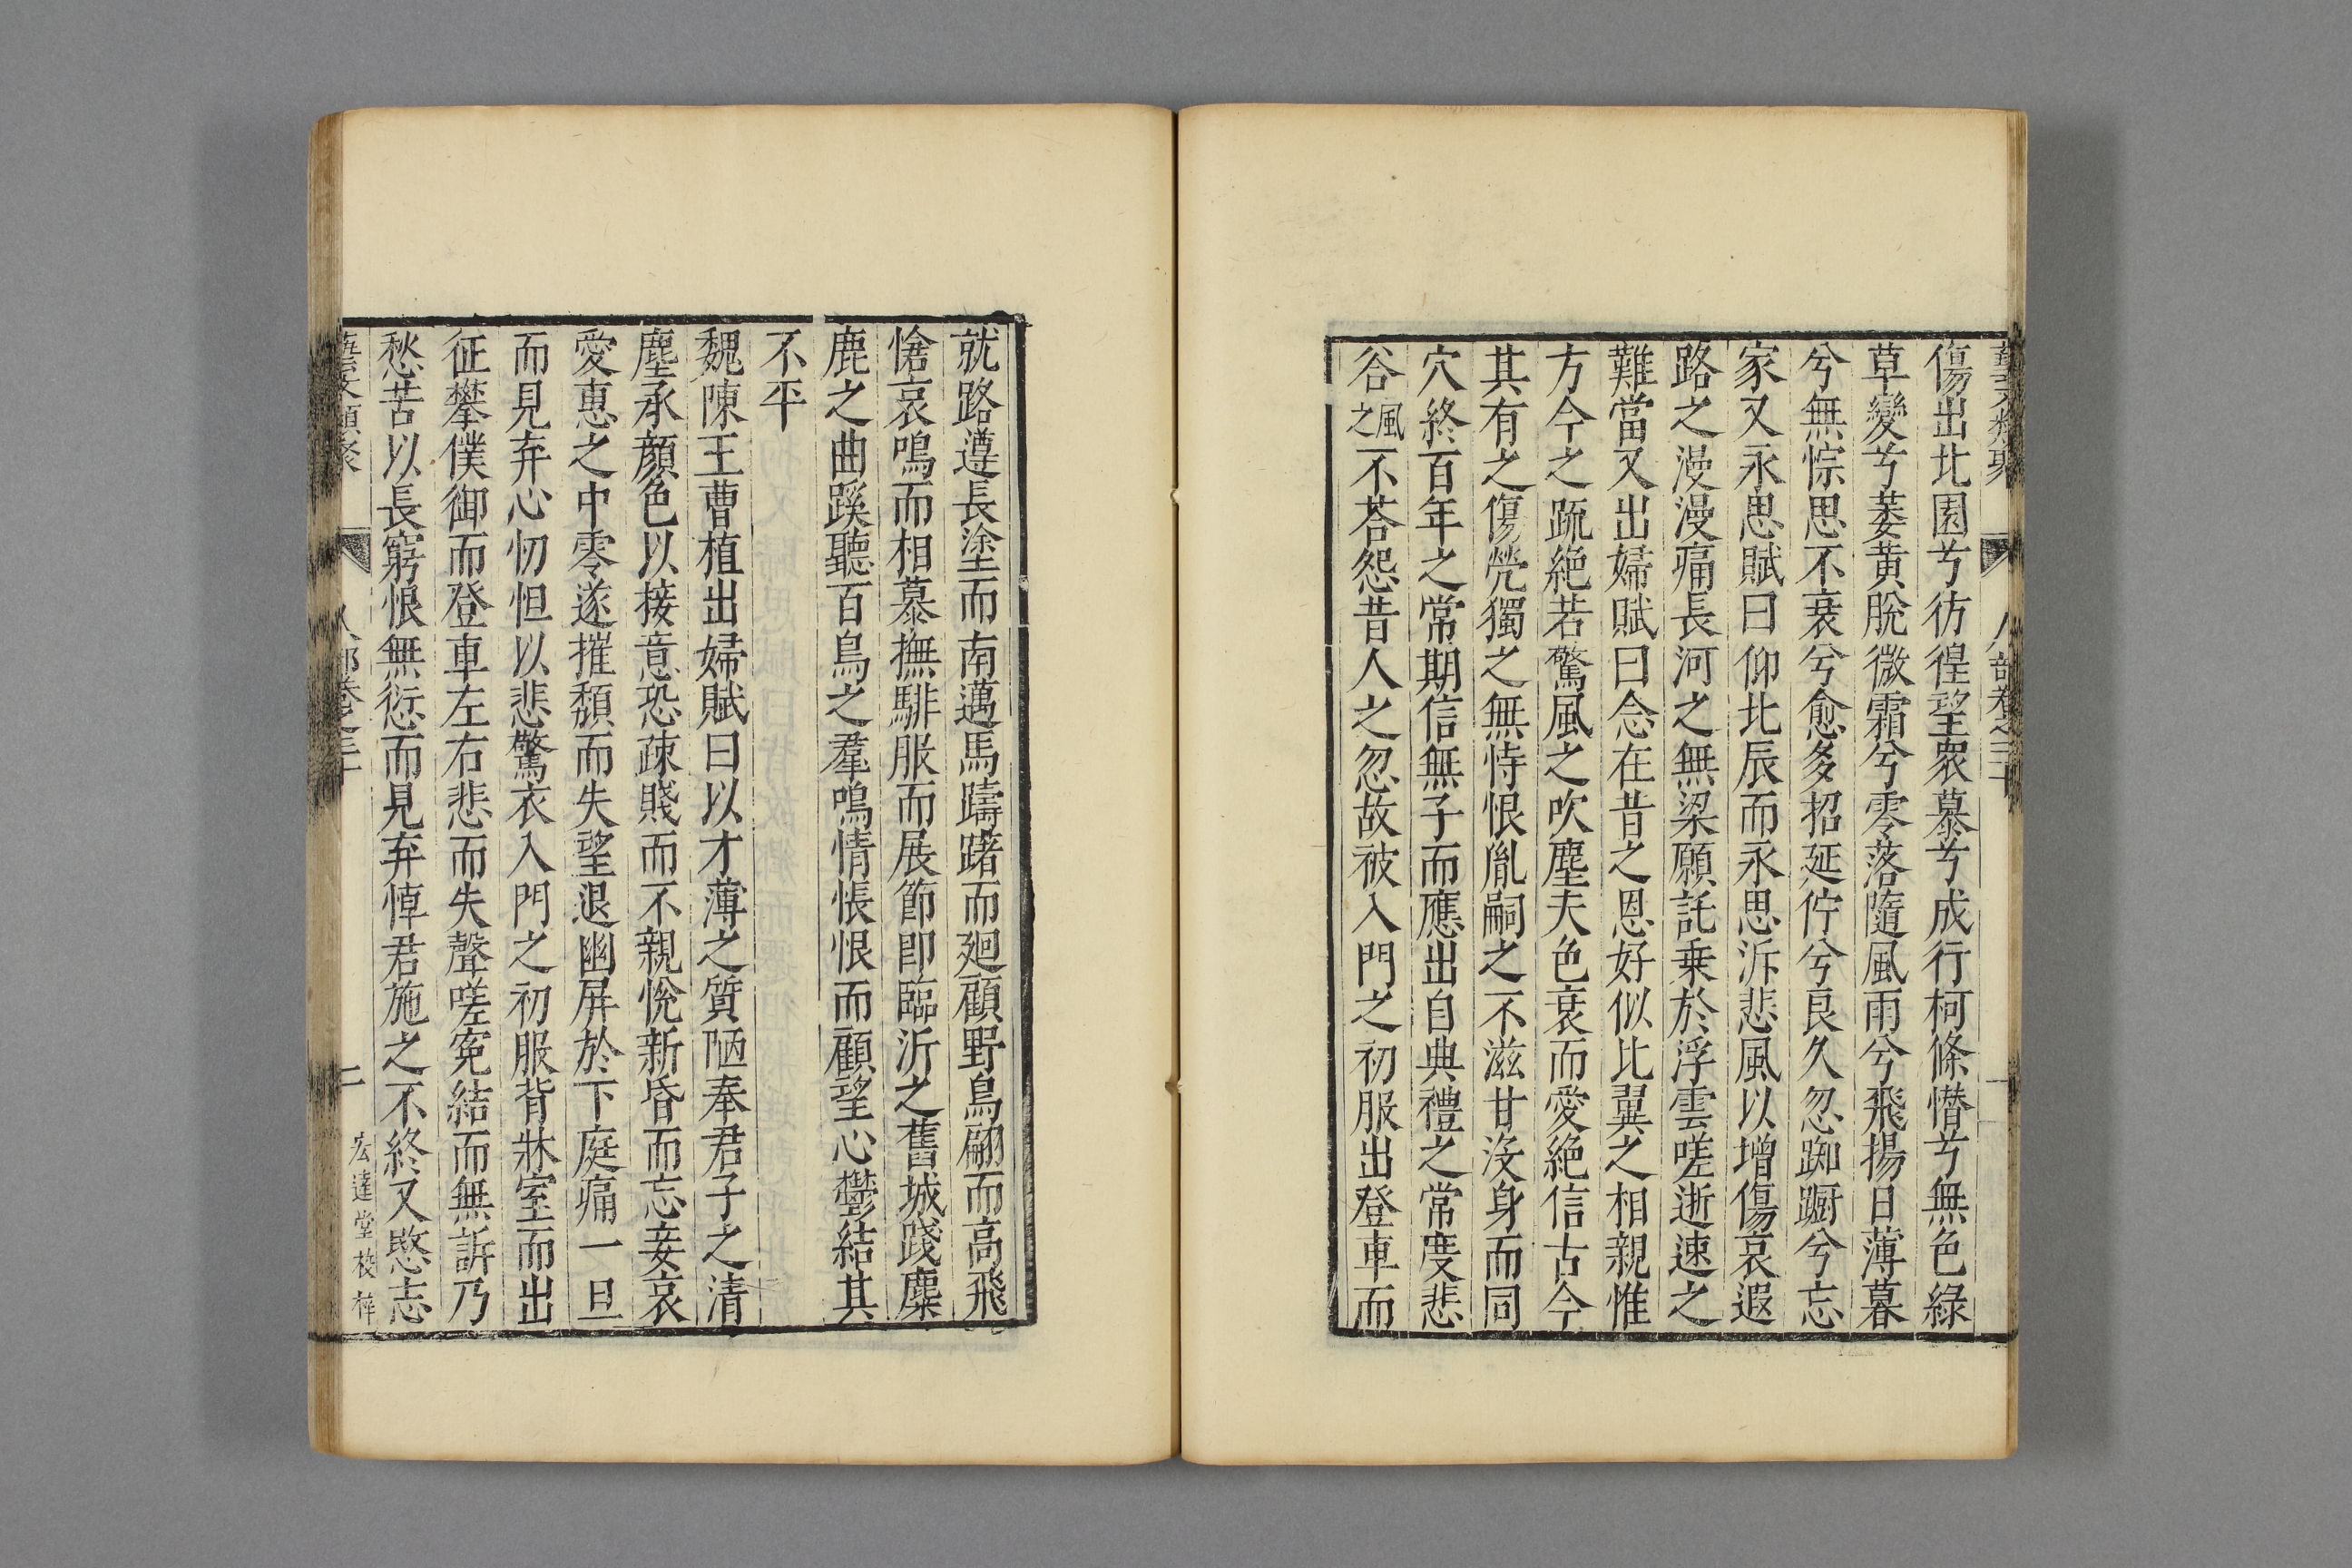 傷出北園兮彷徨望衆慕兮成行柯條憯兮無色綠
草變兮萎黄脫微霜兮零落隨風雨兮飛揚日薄暮
兮無悰思不衰兮愈多招延佇兮良久忽踟蹰兮忘
家又永思賦曰仰北辰而永思泝悲風以增傷哀遐
路之漫漫痛長河之無梁願託乗於浮雲嗟逝速之
難當又出婦賦曰念在昔之恩好似比翼之相親惟
方今之疏絶若驚風之吹塵夫色衰而愛絶信古今
其有之傷焭獨之無恃恨胤嗣之不滋甘沒身而同
穴終百年之常期信無子而應出自典禮之常度悲
谷風之不荅怨昔人之忽故被入門之初服出登車而
就路遵長塗而南邁馬躊躇而廻顧野鳥翩而高飛
愴哀鳴而相慕撫騑服而展節卽臨沂之舊城踐麋
鹿之曲蹊聽百鳥之羣鳴情悵恨而顧望心鬱結其
不平
魏陳王曹植出婦賦曰以才薄之質陋奉君子之清
塵承顔色以接意恐疎賤而不親悅新昏而忘妾哀
愛惠之中零遂摧頽而失望退幽屏於下庭痛一旦
而見弃心忉怛以悲驚衣入門之初服背牀室而出
征攀僕御而登車左右悲而失聲嗟寃結而無訴乃
愁苦以長窮恨無愆而見弃悼君施之不終又愍志
藝文類聚 人部卷之三十 二 宏達堂校梓